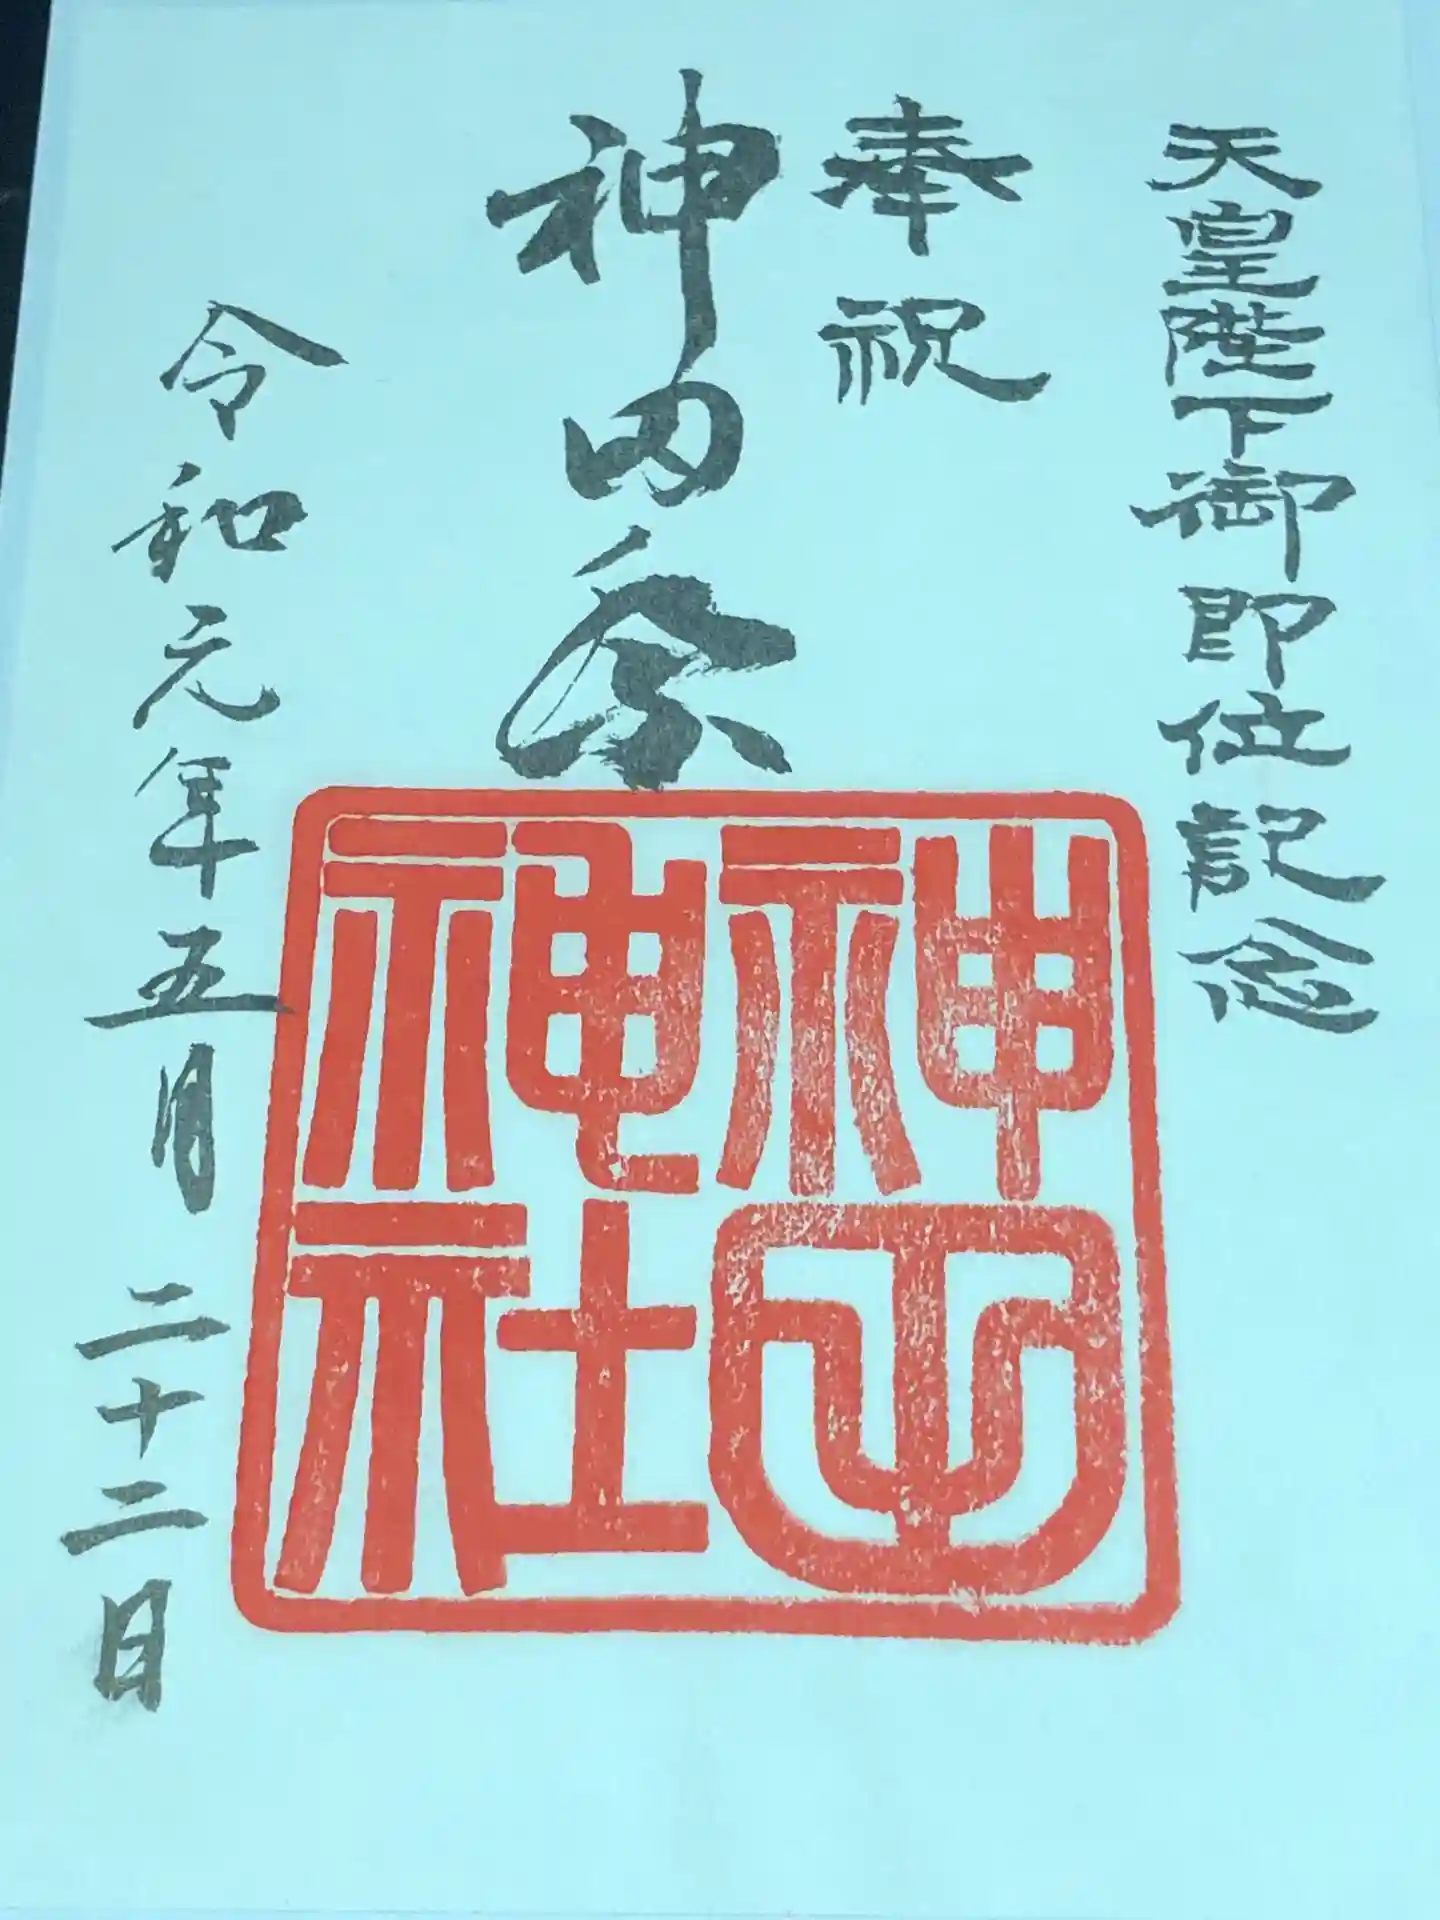 天皇陛下御即位記念
奉祝
神田祭
神田
神社
令和元年五月二十二日